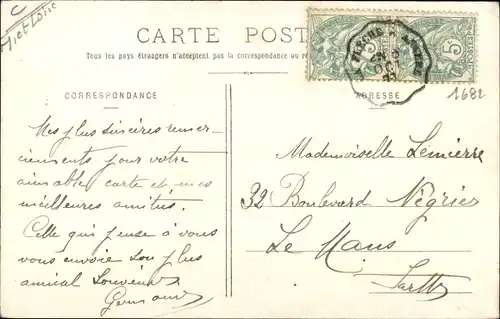 C
M et Loire
CARTE POST
Tous les pays étrangers n'acceptent pas la correspondance au
CORRESPONDANCE
ADRESSE
1682
Mes plus sincères remer-
ciements pour votre
aimable carte et mes
meilleures amitiés.
Celle qui pense à vous
vous envoie son plus
amical souvenir
Mademoiselle Lemierre
32 Boulevard Négrier
Le Mans
Sarthe